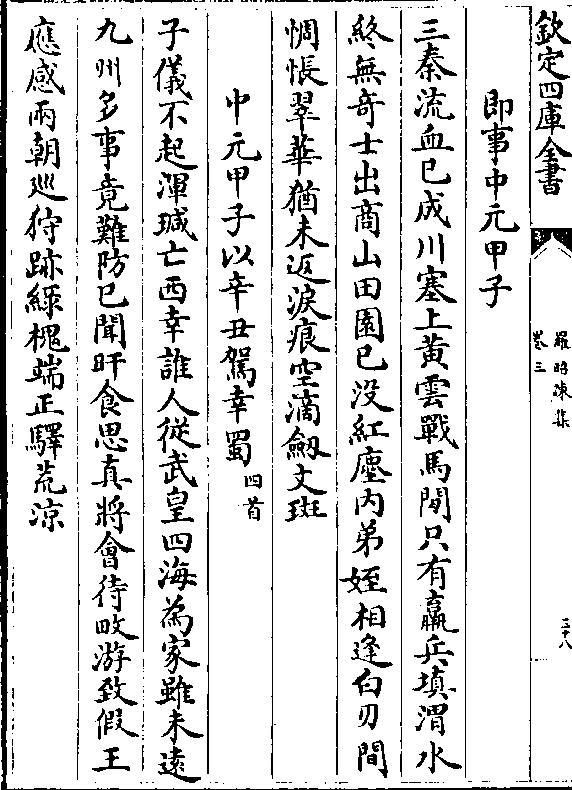 欽定四庫全書
羅昭諫集
卷三
三十八
即事中元甲子
三秦流血已成川塞上黄雲戰馬閒只有羸兵填渭水
終無奇士出商山田園已没紅塵内弟姪相逢白刃間
惆悵翠華猶未返淚痕空滴劒文斑
中元甲子以辛丑駕幸蜀四首
子儀不起渾瑊亡西幸誰人從武皇四海為家雖未遠
九州多事竟難防已聞旰食思真將會待畋游致假王
應感兩朝巡狩跡緑槐端正驛荒凉